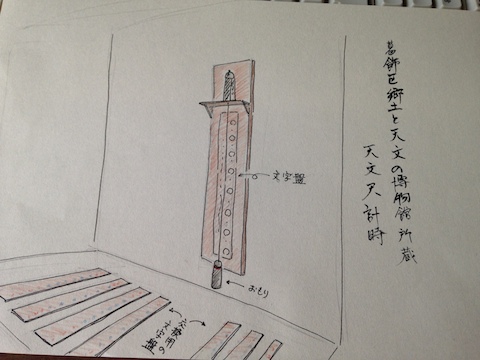 葛飾区郷土と天文の博物館所蔵
天文尺計時
文字盤
おもり
交換用の
文字盤